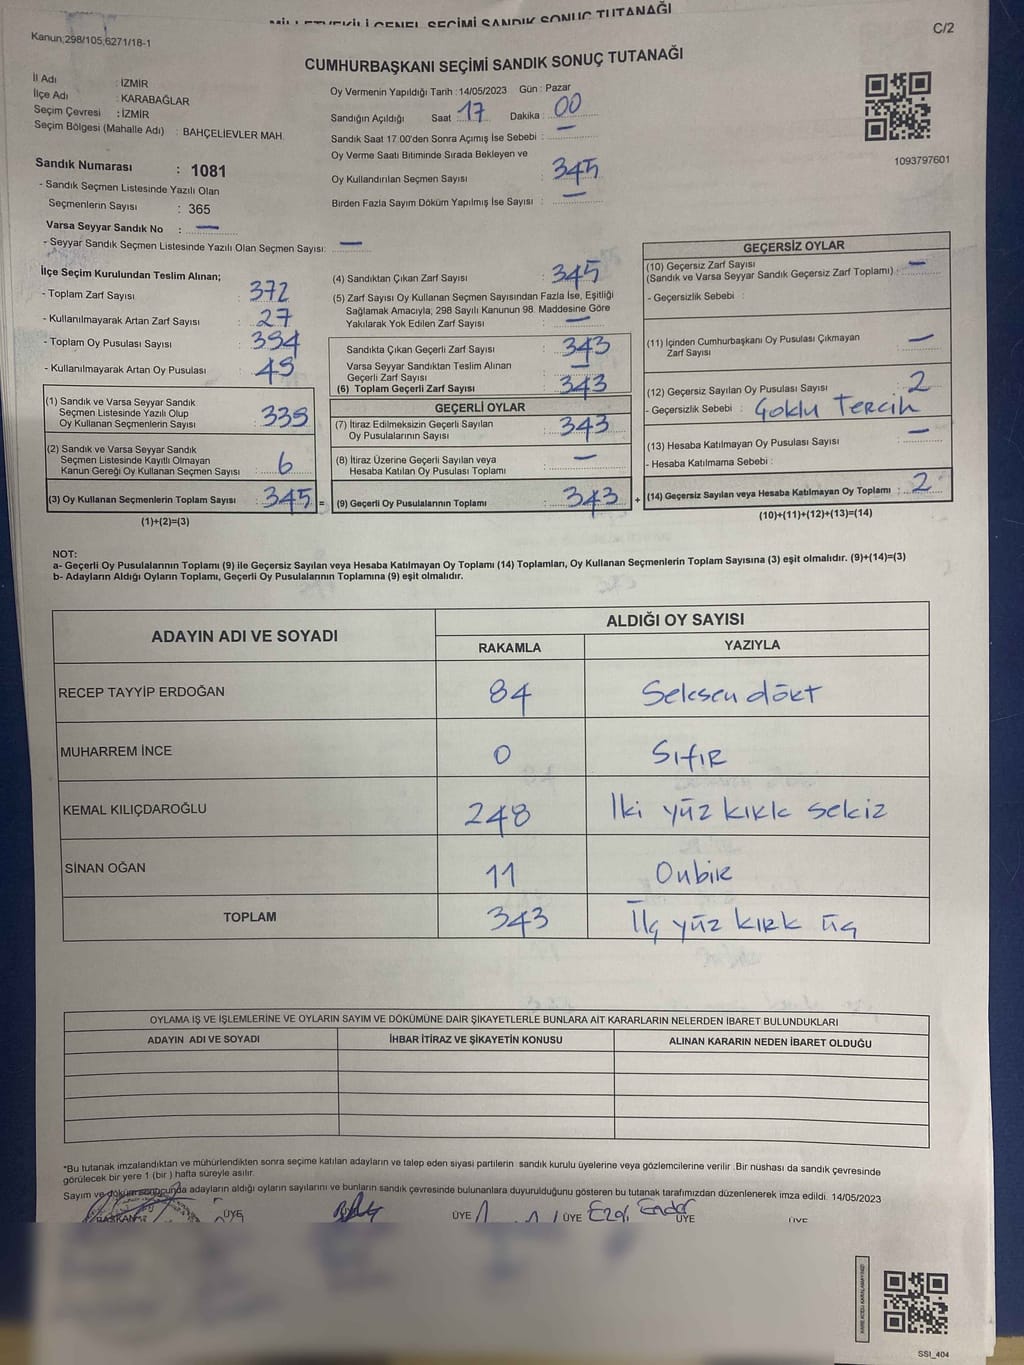 MİLLETVEKİLİ GENEL SEÇİMİ SANDIK SONUÇ TUTANAĞI
Kanun,298/105,6271/18-1
C/2
CUMHURBAŞKANI SEÇİMİ SANDIK SONUÇ TUTANAĞI
İl Adı : İZMİR
İlçe Adı : KARABAĞLAR
Seçim Çevresi : İZMİR
Seçim Bölgesi (Mahalle Adı) : BAHÇELİEVLER MAH.
Sandık Numarası : 1081
- Sandık Seçmen Listesinde Yazılı Olan
Seçmenlerin Sayısı : 365
Varsa Seyyar Sandık No : —
- Seyyar Sandık Seçmen Listesinde Yazılı Olan Seçmen Sayısı: —
Oy Vermenin Yapıldığı Tarih :14/05/2023 Gün : Pazar
Sandığın Açıldığı Saat : 17 Dakika : 00
Sandık Saat 17.00'den Sonra Açımış İse Sebebi : —
Oy Verme Saati Bitiminde Sırada Bekleyen ve
Oy Kullandırılan Seçmen Sayısı : 345
Birden Fazla Sayım Döküm Yapılmış İse Sayısı : —
1093797601
İlçe Seçim Kurulundan Teslim Alınan;
- Toplam Zarf Sayısı : 372
- Kullanılmayarak Artan Zarf Sayısı : 27
- Toplam Oy Pusulası Sayısı : 394
- Kullanılmayarak Artan Oy Pusulası : 49
(1) Sandık ve Varsa Seyyar Sandık
Seçmen Listesinde Yazılı Olup
Oy Kullanan Seçmenlerin Sayısı : 339
(2) Sandık ve Varsa Seyyar Sandık
Seçmen Listesinde Kayıtlı Olmayan
Kanun Gereği Oy Kullanan Seçmen Sayısı : 6
(3) Oy Kullanan Seçmenlerin Toplam Sayısı : 345 =
(1)+(2)=(3)
(4) Sandıktan Çıkan Zarf Sayısı : 345
(5) Zarf Sayısı Oy Kullanan Seçmen Sayısından Fazla İse, Eşitliği
Sağlamak Amacıyla; 298 Sayılı Kanunun 98. Maddesine Göre
Yakılarak Yok Edilen Zarf Sayısı : —
Sandıkta Çıkan Geçerli Zarf Sayısı : 343
Varsa Seyyar Sandıktan Teslim Alınan
Geçerli Zarf Sayısı : —
(6) Toplam Geçerli Zarf Sayısı : 343
GEÇERLİ OYLAR
(7) İtiraz Edilmeksizin Geçerli Sayılan
Oy Pusulalarının Sayısı : 343
(8) İtiraz Üzerine Geçerli Sayılan veya
Hesaba Katılan Oy Pusulası Toplamı : —
(9) Geçerli Oy Pusulalarının Toplamı : 343 +
GEÇERSİZ OYLAR
(10) Geçersiz Zarf Sayısı —
(Sandık ve Varsa Seyyar Sandık Geçersiz Zarf Toplamı) :
- Geçersizlik Sebebi :
(11) İçinden Cumhurbaşkanı Oy Pusulası Çıkmayan
Zarf Sayısı —
(12) Geçersiz Sayılan Oy Pusulası Sayısı : 2
- Geçersizlik Sebebi : Çoklu Tercih
(13) Hesaba Katılmayan Oy Pusulası Sayısı : —
- Hesaba Katılmama Sebebi :
(14) Geçersiz Sayılan veya Hesaba Katılmayan Oy Toplamı : 2
(10)+(11)+(12)+(13)=(14)
NOT:
a- Geçerli Oy Pusulalarının Toplamı (9) ile Geçersiz Sayılan veya Hesaba Katılmayan Oy Toplamı (14) Toplamları, Oy Kullanan Seçmenlerin Toplam Sayısına (3) eşit olmalıdır. (9)+(14)=(3)
b- Adayların Aldığı Oyların Toplamı, Geçerli Oy Pusulalarının Toplamına (9) eşit olmalıdır.
ADAYIN ADI VE SOYADI ALDIĞI OY SAYISI
RAKAMLA YAZIYLA
RECEP TAYYİP ERDOĞAN 84 Seksen dört
MUHARREM İNCE 0 Sıfır
KEMAL KILIÇDAROĞLU 248 İki yüz kırk sekiz
SİNAN OĞAN 11 Onbir
TOPLAM 343 Üç yüz kırk üç
OYLAMA İŞ VE İŞLEMLERİNE VE OYLARIN SAYIM VE DÖKÜMÜNE DAİR ŞİKAYETLERLE BUNLARA AİT KARARLARIN NELERDEN İBARET BULUNDUKLARI
ADAYIN ADI VE SOYADI İHBAR İTİRAZ VE ŞİKAYETİN KONUSU ALINAN KARARIN NEDEN İBARET OLDUĞU
*Bu tutanak imzalandıktan ve mühürlendikten sonra seçime katılan adayların ve talep eden siyasi partilerin sandık kurulu üyelerine veya gözlemcilerine verilir .Bir nüshası da sandık çevresinde
görülecek bir yere 1 (bir ) hafta süreyle asılır.
Sayım ve döküm sonucunda adayların aldığı oyların sayılarını ve bunların sandık çevresinde bulunanlara duyurulduğunu gösteren bu tutanak tarafımızdan düzenlenerek imza edildi. 14/05/2023
BAŞKAN ÜYE ÜYE ÜYE Ezgi Ender ÜYE ÜYE
SSI_404